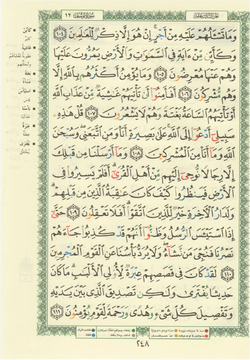 وَمَا تَسْـَٔلُهُمْ عَلَيْهِ مِنْ أَجْرٍ إِنْ هُوَ إِلَّا ذِكْرٌ لِّلْعَـٰلَمِينَ ١٠٤
وَكَأَيِّن مِّنْ ءَايَةٍ فِى ٱلسَّمَـٰوَٰتِ وَٱلْأَرْضِ يَمُرُّونَ عَلَيْهَا
وَهُمْ عَنْهَا مُعْرِضُونَ ١٠٥ وَمَا يُؤْمِنُ أَكْثَرُهُم بِٱللَّهِ إِلَّا
وَهُم مُّشْرِكُونَ ١٠٦ أَفَأَمِنُوٓا۟ أَن تَأْتِيَهُمْ غَـٰشِيَةٌ مِّنْ عَذَابِ ٱللَّهِ
أَوْ تَأْتِيَهُمُ ٱلسَّاعَةُ بَغْتَةً وَهُمْ لَا يَشْعُرُونَ ١٠٧ قُلْ هَـٰذِهِۦ
سَبِيلِىٓ أَدْعُوٓا۟ إِلَى ٱللَّهِ عَلَىٰ بَصِيرَةٍ أَنَا۠ وَمَنِ ٱتَّبَعَنِى وَسُبْحَـٰنَ
ٱللَّهِ وَمَآ أَنَا۠ مِنَ ٱلْمُشْرِكِينَ ١٠٨ وَمَآ أَرْسَلْنَا مِن قَبْلِكَ
إِلَّا رِجَالًا نُّوحِىٓ إِلَيْهِم مِّنْ أَهْلِ ٱلْقُرَىٰٓ أَفَلَمْ يَسِيرُوا۟ فِى
ٱلْأَرْضِ فَيَنظُرُوا۟ كَيْفَ كَانَ عَـٰقِبَةُ ٱلَّذِينَ مِن قَبْلِهِمْ
وَلَدَارُ ٱلْـَٔاخِرَةِ خَيْرٌ لِّلَّذِينَ ٱتَّقَوْا۟ أَفَلَا تَعْقِلُونَ ١٠٩ حَتَّىٰٓ
إِذَا ٱسْتَيْـَٔسَ ٱلرُّسُلُ وَظَنُّوٓا۟ أَنَّهُمْ قَدْ كُذِبُوا۟ جَآءَهُمْ
نَصْرُنَا فَنُجِّىَ مَن نَّشَآءُ وَلَا يُرَدُّ بَأْسُنَا عَنِ ٱلْقَوْمِ ٱلْمُجْرِمِينَ
١١٠ لَقَدْ كَانَ فِى قَصَصِهِمْ عِبْرَةٌ لِّأُو۟لِى ٱلْأَلْبَـٰبِ مَا كَانَ
حَدِيثًا يُفْتَرَىٰ وَلَـٰكِن تَصْدِيقَ ٱلَّذِى بَيْنَ يَدَيْهِ
وَتَفْصِيلَ كُلِّ شَىْءٍ وَهُدًى وَرَحْمَةً لِّقَوْمٍ يُؤْمِنُونَ ١١١
٢٤٨